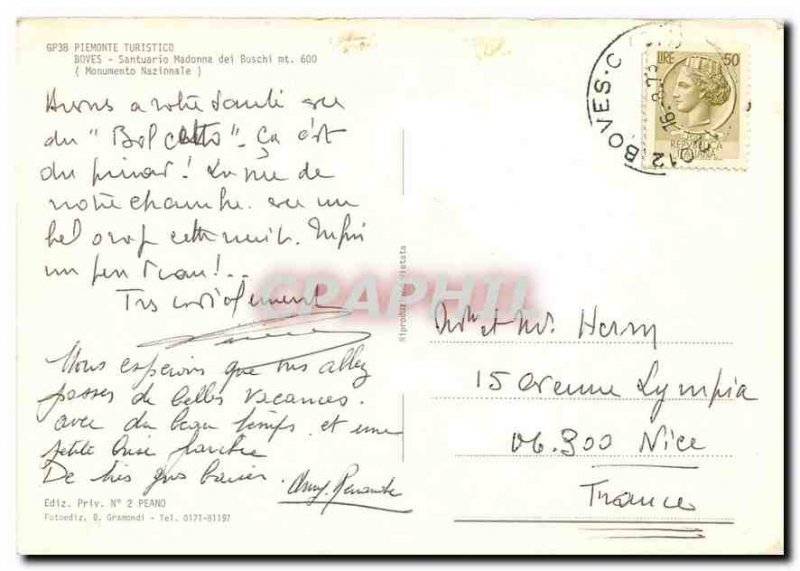 GP38 PIEMONTE TURISTICO
BOVES - Santuario Madonna dei Boschi mt. 600
( Monumento Nazionale )
LIRE 50
REPVBBLICA
ITALIANA
12 BOVES - C
16-8-7
Avons a votre santé avec
du " " - Ça c'est
du pinar! La vue de
notre chambre avec un
bel orage cette nuit. Enfin
un peu d'eau!..
Très cordialement
Nous espérons que vous allez
passer de belles vacances.
avec du beau temps et une
petite brise fraiche
De très gros baisers.
Ediz. Priv. N° 2 PEANO
Fotoediz. B. Gramondi - Tel. 0171-81197
Riproduz. Vietata
CPAPHIL
Mme et Mr.
15 avenue Lympia
06.300 Nice
France